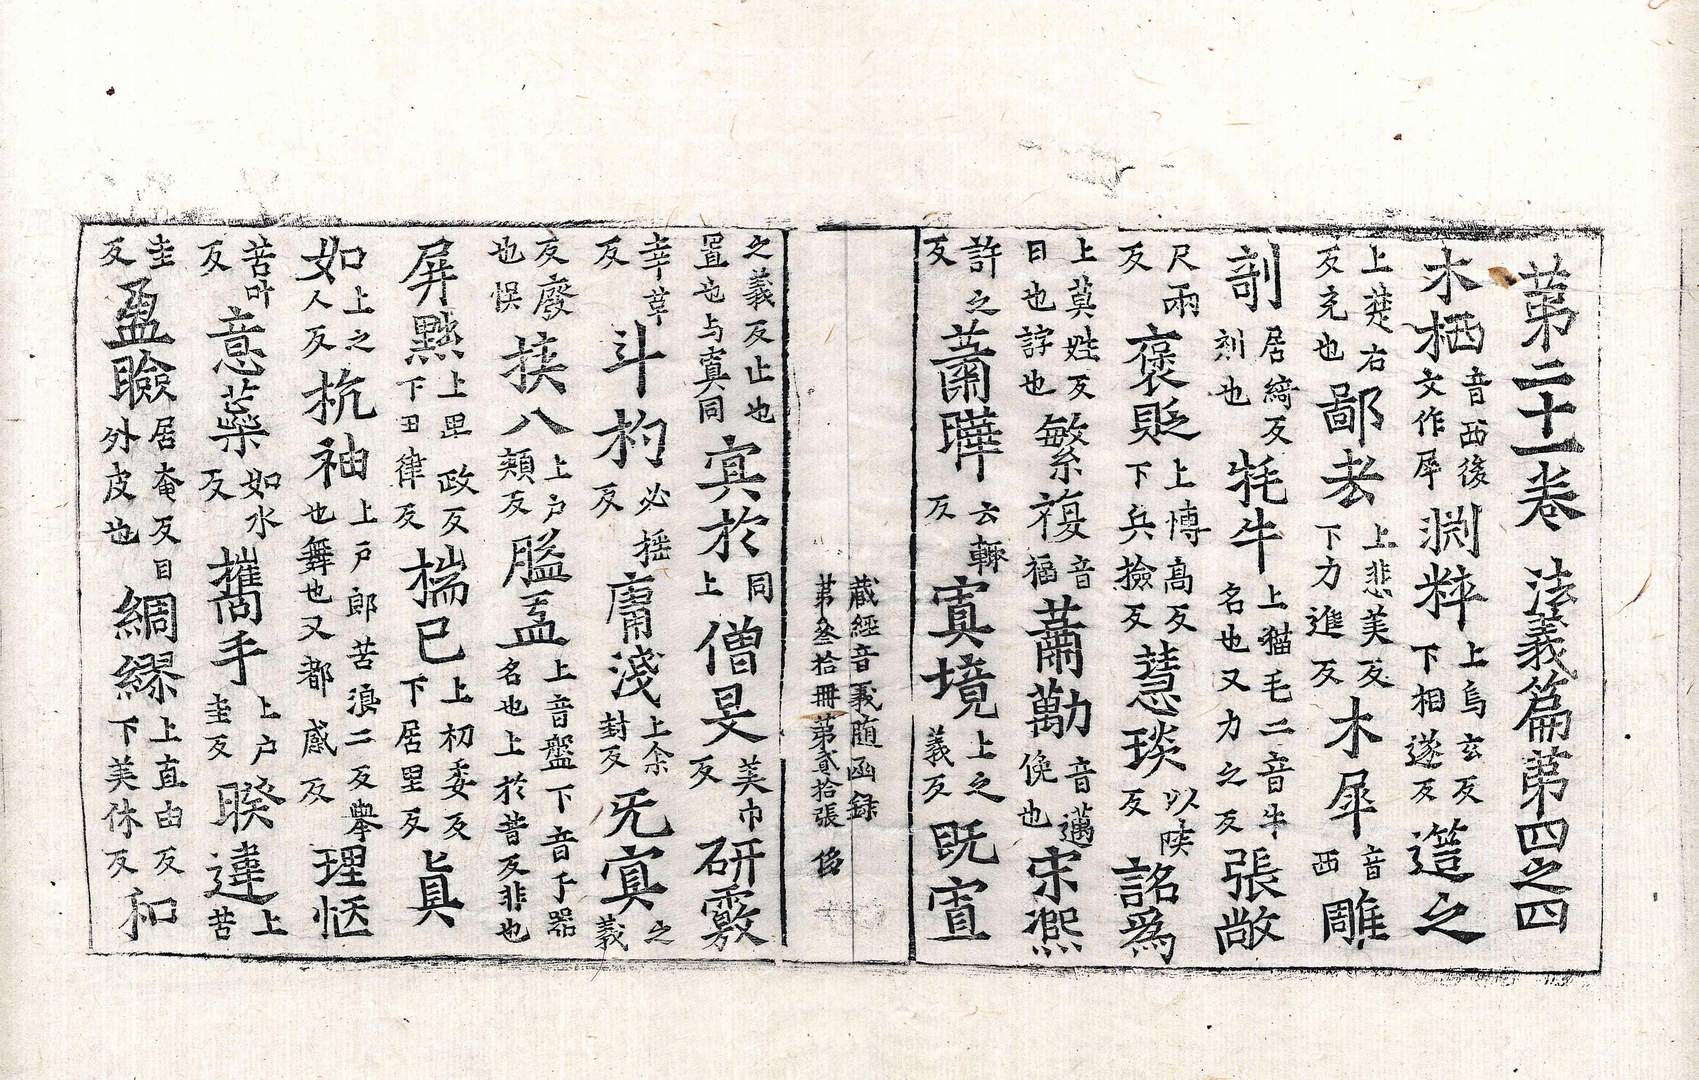 第二十一卷 法義篇第四之四
木栖音西後文作犀渊粹上烏玄反下相遂反簉之
上楚右反充也鄙耉上悲美反下力進反木犀音西雕
剞居綺反剞也牦牛上猫毛二音牛名也又力之反張敞
尺兩反褒貶上博高反下兵撿反慧琰以陕反詺為
上莫姓反目也諄也繁複音福蕳勱音邁俛也宋凞
許之反蕳曄云輙反寘境上之義反既寘
藏經音義随函録
第叄拾冊第貳拾張 侈
之義反止也置也与寘同寘於同上僧旻美巾反研覈
幸革反斗杓必摇反庸淺上余封反旡寘之義
反廢也悮挟八上户頰反膃盂上音盤下音于器名也上於昔反非也
屏黜上毘政反下田律反揣已上初委反下居里反眞
如上之人反杭袖上戶郎苦浪二反舉也舞也又都感反理恬
苦叶反意蘂如水反㩗手上户圭反睽違上苦
圭反盈瞼居奄反目外皮也綢繆上直由反下美休反和